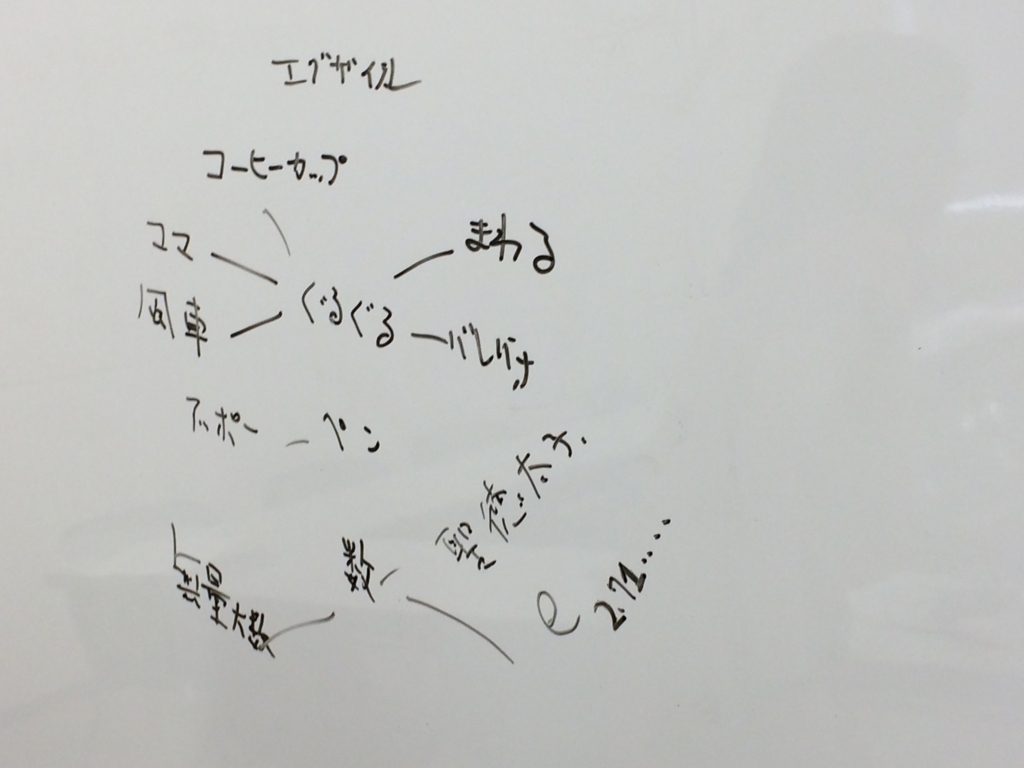 エグザイル
コーヒーカップ
コマ
まわる
風車
ぐるぐる
バレリーナ
アッポー
ペン
聖徳太子
数
無量大数
e 2.71....